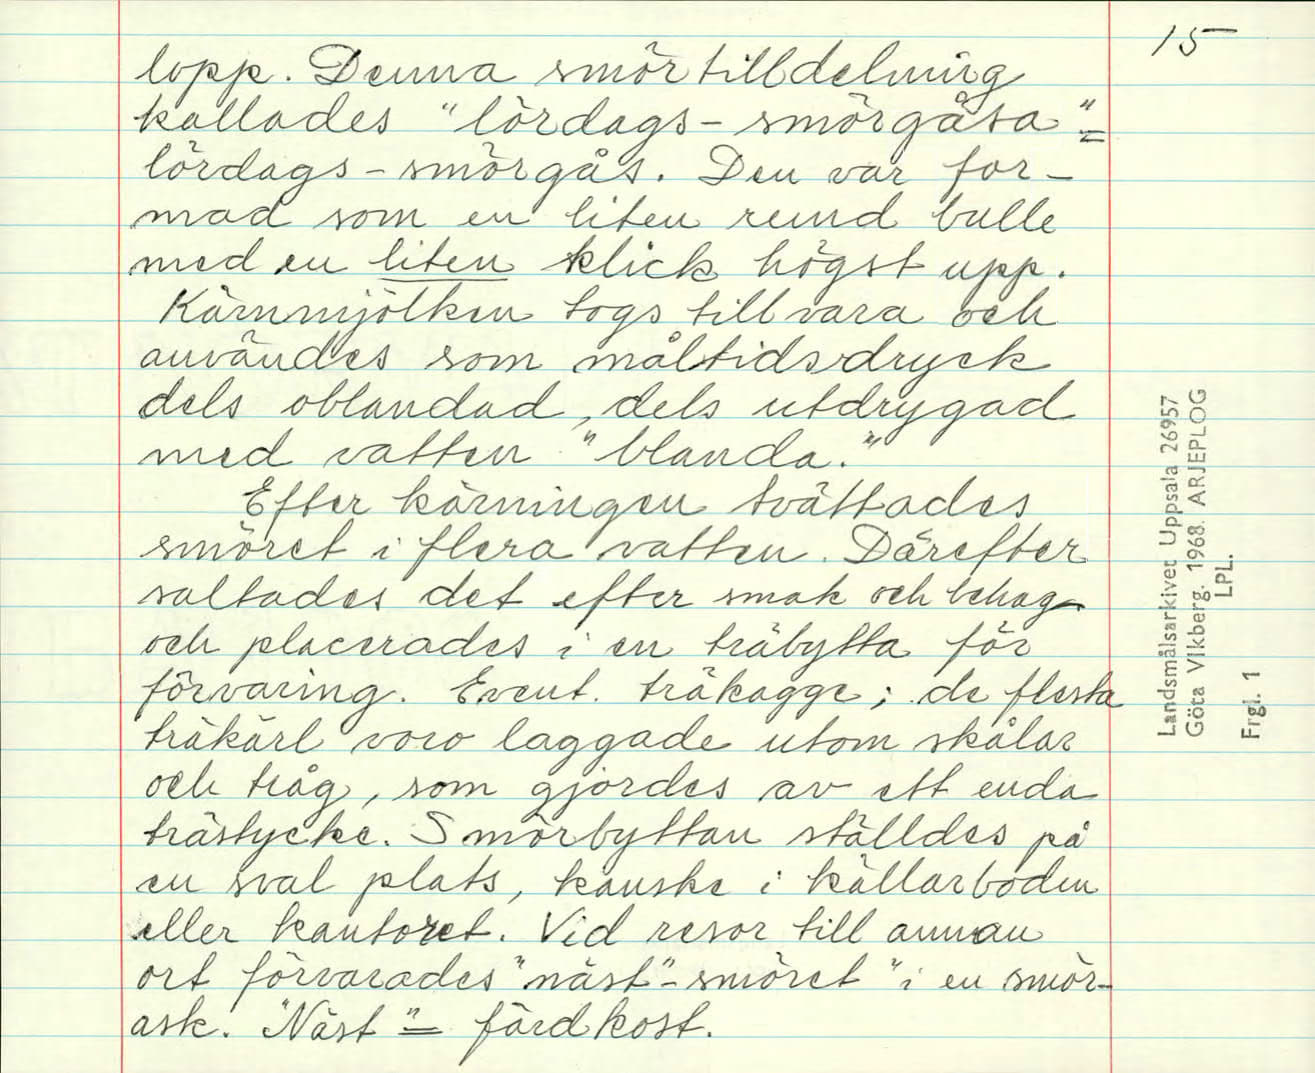 15
lopp. Denna smörtilldelning
kallades "lördags-smörgåsa" =
lördags-smörgås. Den var for-
mad som en liten rund bulle
med en liten klick högst upp.
Kärnmjölken togs tillvara och
användes som måltidsdryck
dels oblandad, dels utdrygad
med vatten "blanda."
Efter kärningen tvättades
smöret i flera vatten. Därefter
saltades det efter smak och behag
och placerades i en träbytta för
förvaring. Event. träkagge; de flesta
träkärl voro laggade utom skålar
och tråg, som gjordes av ett enda
trästycke. Smörbyttan ställdes på
en sval plats, kanske i källarboden
eller kantoret. Vid resor till annan
ort förvarades "näst"-smöret" i en smör-
ask. "Näst" = färdkost.
Landsmålsarkivet Uppsala 26957
Göta Vikberg. 1968. ARJEPLOG
LPL.
Frgl. 1